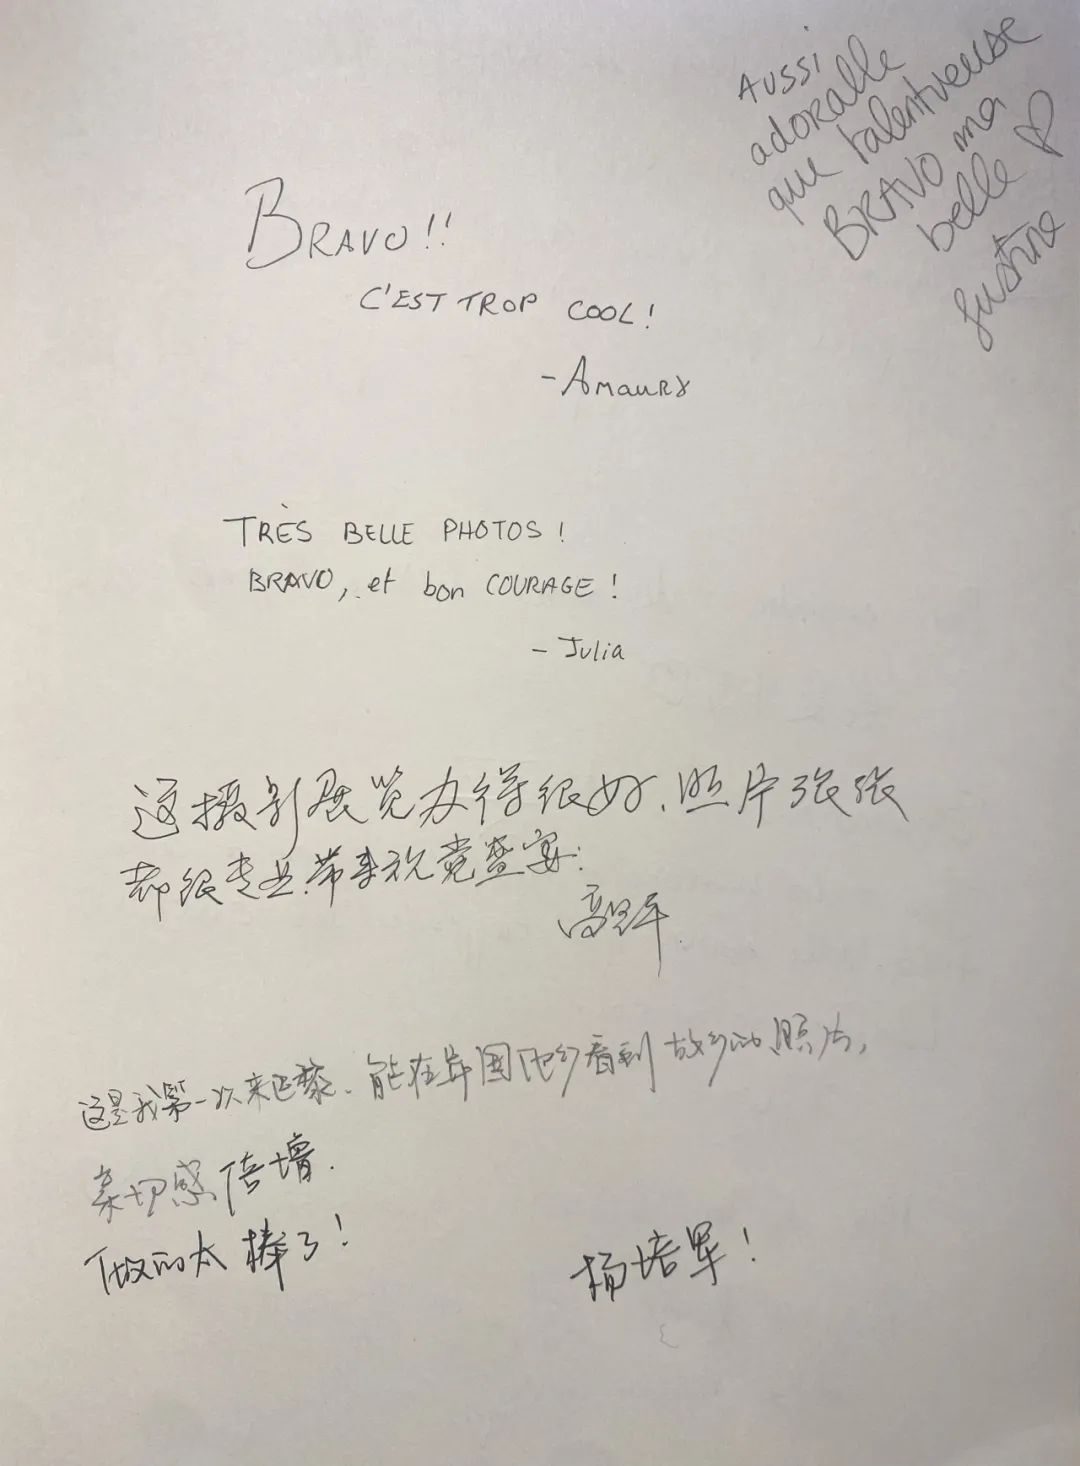 AUSSI
adorable
que talentueuse
BRAVO ma
belle ♡
Justine
BRAVO!!
C'EST TROP COOL!
-Amaury
TRÈS BELLE PHOTOS!
BRAVO, et bon COURAGE!
- Julia
这摄影展览办得很好,照片张张
都很专业,带来视觉盛宴:
高
这是我第一次来巴黎、能在异国他乡看到故乡的照片,
亲切感倍增.
做的太棒了!
杨培军!